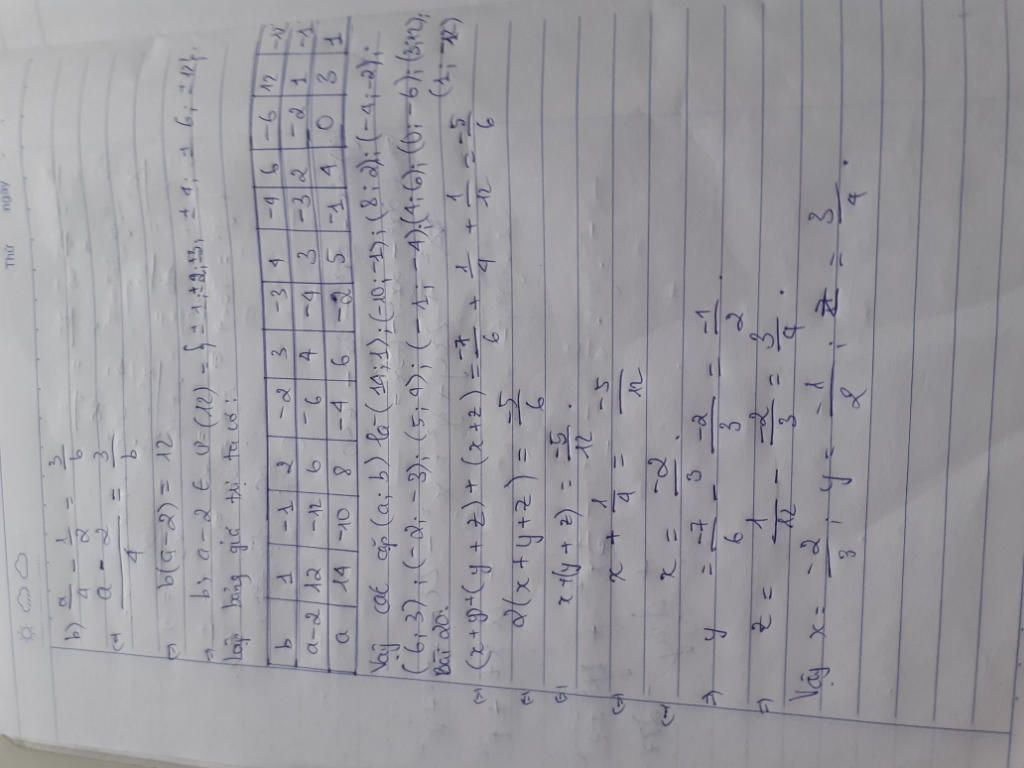 Thứ ngày
b) a/4 - 1/2 = 3/b
(=) a - 2 / 4 = 3/b
=) b(a-2) = 12
=) b, a-2 ∈ Ư(12) = {±1; ±2; ±3; ±4; ±6; ±12}.
Lập bảng giá trị ta có:
b | 1 | -1 | 2 | -2 | 3 | -3 | 4 | -4 | 6 | -6 | 12 | -12
a-2 | 12 | -12 | 6 | -6 | 4 | -4 | 3 | -3 | 2 | -2 | 1 | -1
a | 14 | -10 | 8 | -4 | 6 | -2 | 5 | -1 | 4 | 0 | 3 | 1
Vậy các cặp (a; b) là (14; 1); (-10; -1); (8; 2); (-4; -2);
(6; 3); (-2; -3); (5; 4); (-1; -4); (4; 6); (0; -6); (3; 12);
(1; -12)
Bài 20:
(=) (x+y)+(y+z)+(x+z) = -7/6 + 1/4 + 1/12 = -5/6
(=) 2(x+y+z) = -5/6
(=) x+(y+z) = -5/12.
(=) x + 1/4 = -5/12
(=) x = -2/3.
=) y = -7/6 - -2/3 = -1/2.
=) z = 1/12 - -2/3 = 3/4.
Vậy x = -2/3; y = -1/2; z = 3/4.